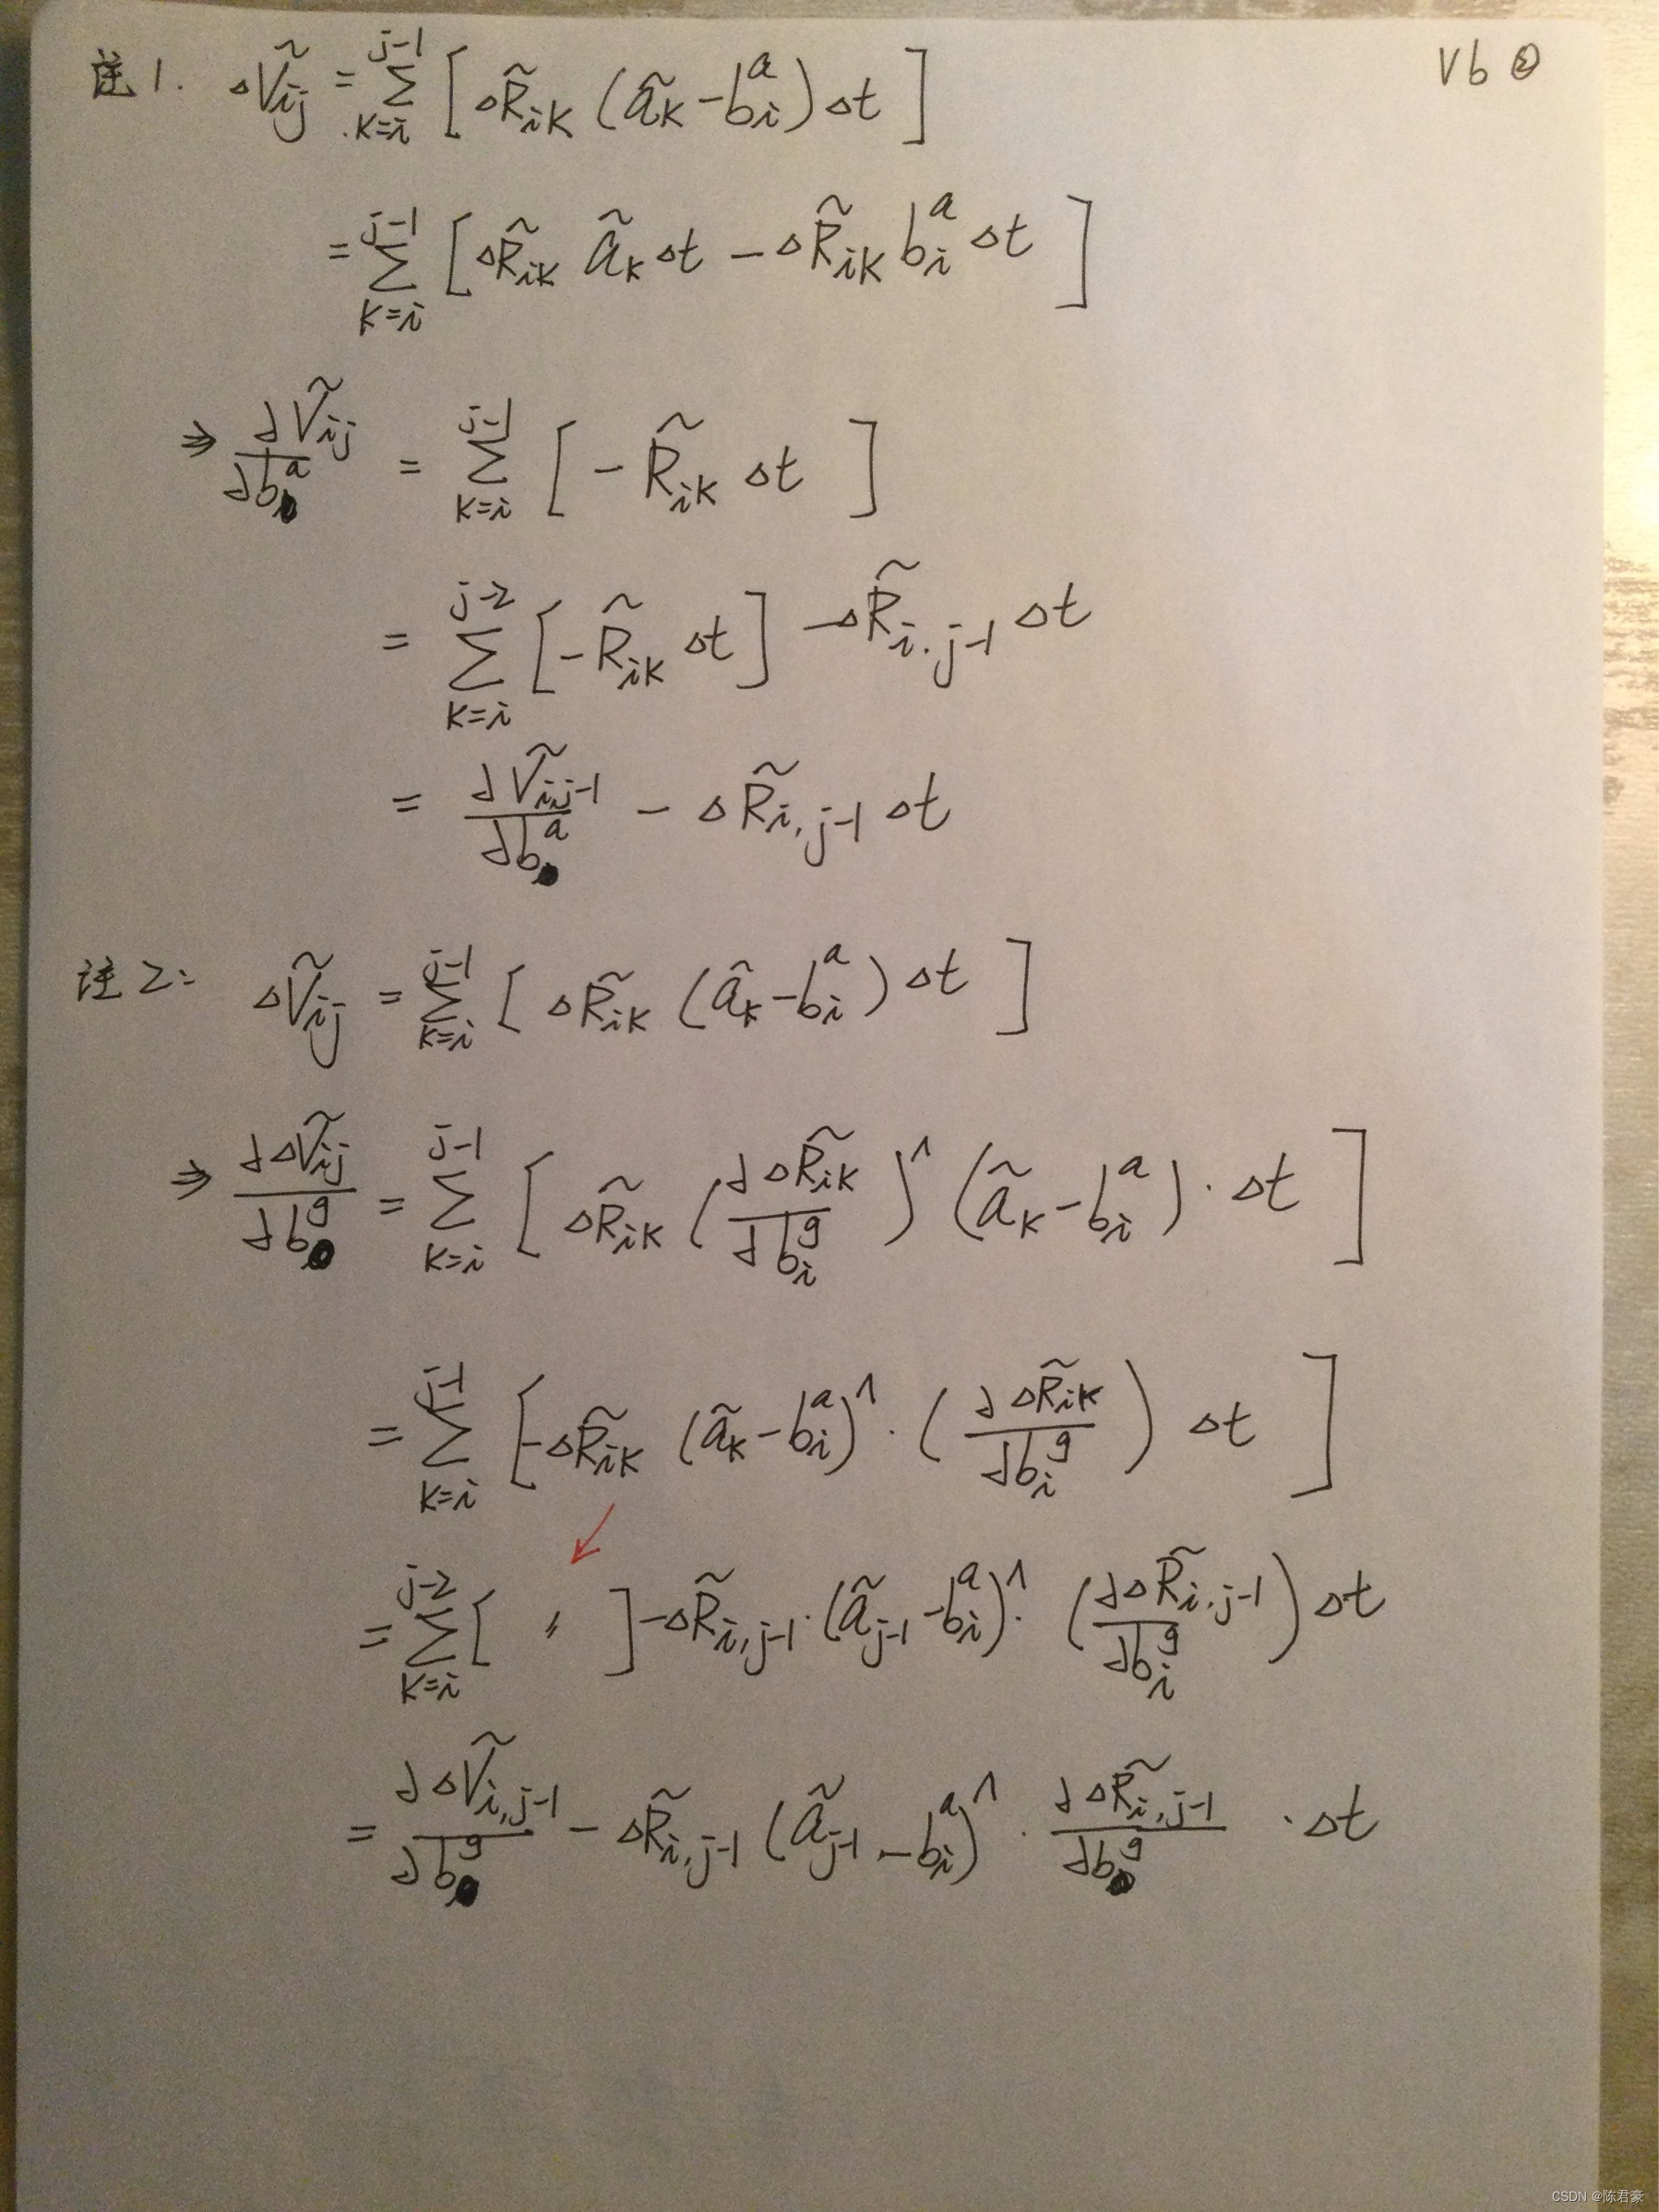 注1. $\Delta \tilde{V}_{ij} = \sum_{k=i}^{j-1} [ \Delta \tilde{R}_{ik} (\tilde{a}_k - b_i^a) \Delta t ]$ Vb ②
$= \sum_{k=i}^{j-1} [ \Delta \tilde{R}_{ik} \tilde{a}_k \Delta t - \Delta \tilde{R}_{ik} b_i^a \Delta t ]$
$\Rightarrow \frac{d \tilde{V}_{ij}}{d b^a} = \sum_{k=i}^{j-1} [ - \tilde{R}_{ik} \Delta t ]$
$= \sum_{k=i}^{j-2} [ - \tilde{R}_{ik} \Delta t ] - \Delta \tilde{R}_{i.j-1} \Delta t$
$= \frac{d \tilde{V}_{i,j-1}}{d b^a} - \Delta \tilde{R}_{i,j-1} \Delta t$
注2: $\Delta \tilde{V}_{ij} = \sum_{k=i}^{j-1} [ \Delta \tilde{R}_{ik} (\tilde{a}_k - b_i^a) \Delta t ]$
$\Rightarrow \frac{d \Delta \tilde{V}_{ij}}{d b^g} = \sum_{k=i}^{j-1} [ \Delta \tilde{R}_{ik} ( \frac{d \Delta \tilde{R}_{ik}}{d b_i^g} )^\wedge (\tilde{a}_k - b_i^a) \cdot \Delta t ]$
$= \sum_{k=i}^{j-1} [ - \Delta \tilde{R}_{ik} (\tilde{a}_k - b_i^a)^\wedge \cdot ( \frac{d \Delta \tilde{R}_{ik}}{d b_i^g} ) \Delta t ]$
$= \sum_{k=i}^{j-2} [ \; 〃 \; ] - \Delta \tilde{R}_{i,j-1} \cdot (\tilde{a}_{j-1} - b_i^a)^\wedge \cdot ( \frac{d \Delta \tilde{R}_{i.j-1}}{d b_i^g} ) \Delta t$
$= \frac{d \Delta \tilde{V}_{i,j-1}}{d b^g} - \Delta \tilde{R}_{i,j-1} (\tilde{a}_{j-1} - b_i^a)^\wedge \cdot \frac{d \Delta \tilde{R}_{i,j-1}}{d b^g} \cdot \Delta t$
CSDN @陈君豪